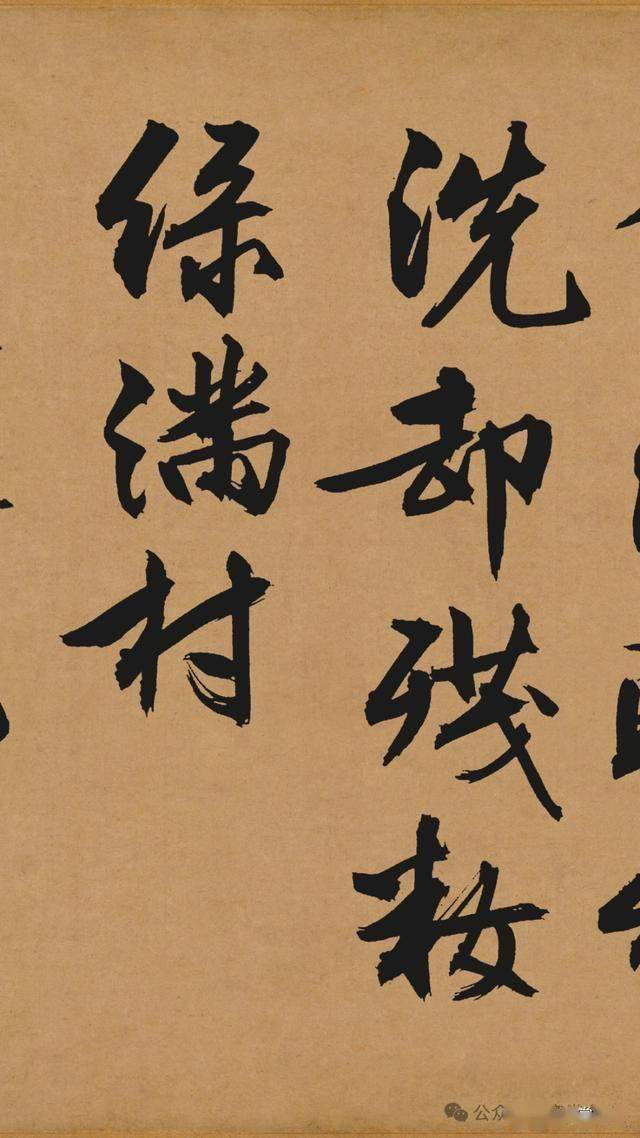 洗却残籹
绿满村
公众